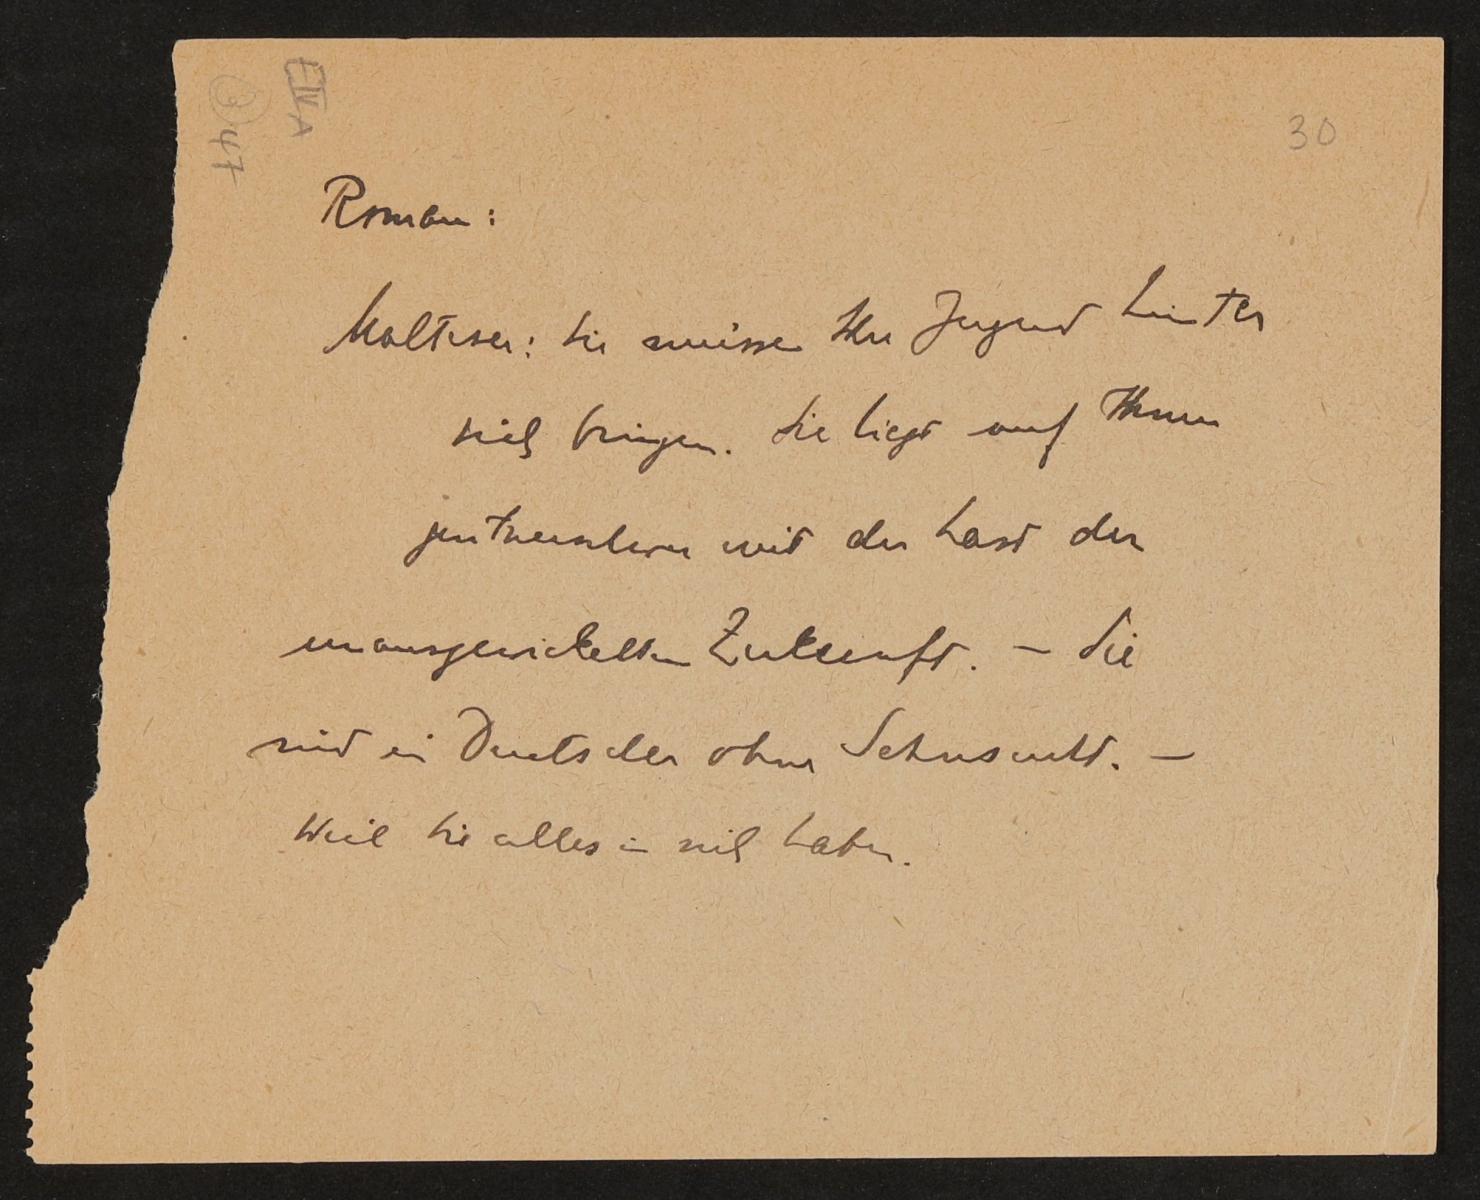 E IV A
③ 47
30
Roman:
Malteser: Sie müssen Ihre Jugend hinter
sich bringen. Sie liegt auf Ihnen
zentnerschwer mit der Last der
unausgewickelten Zukunft. — Sie
sind ein Deutscher ohne Sehnsucht. —
Weil Sie alles in sich haben.